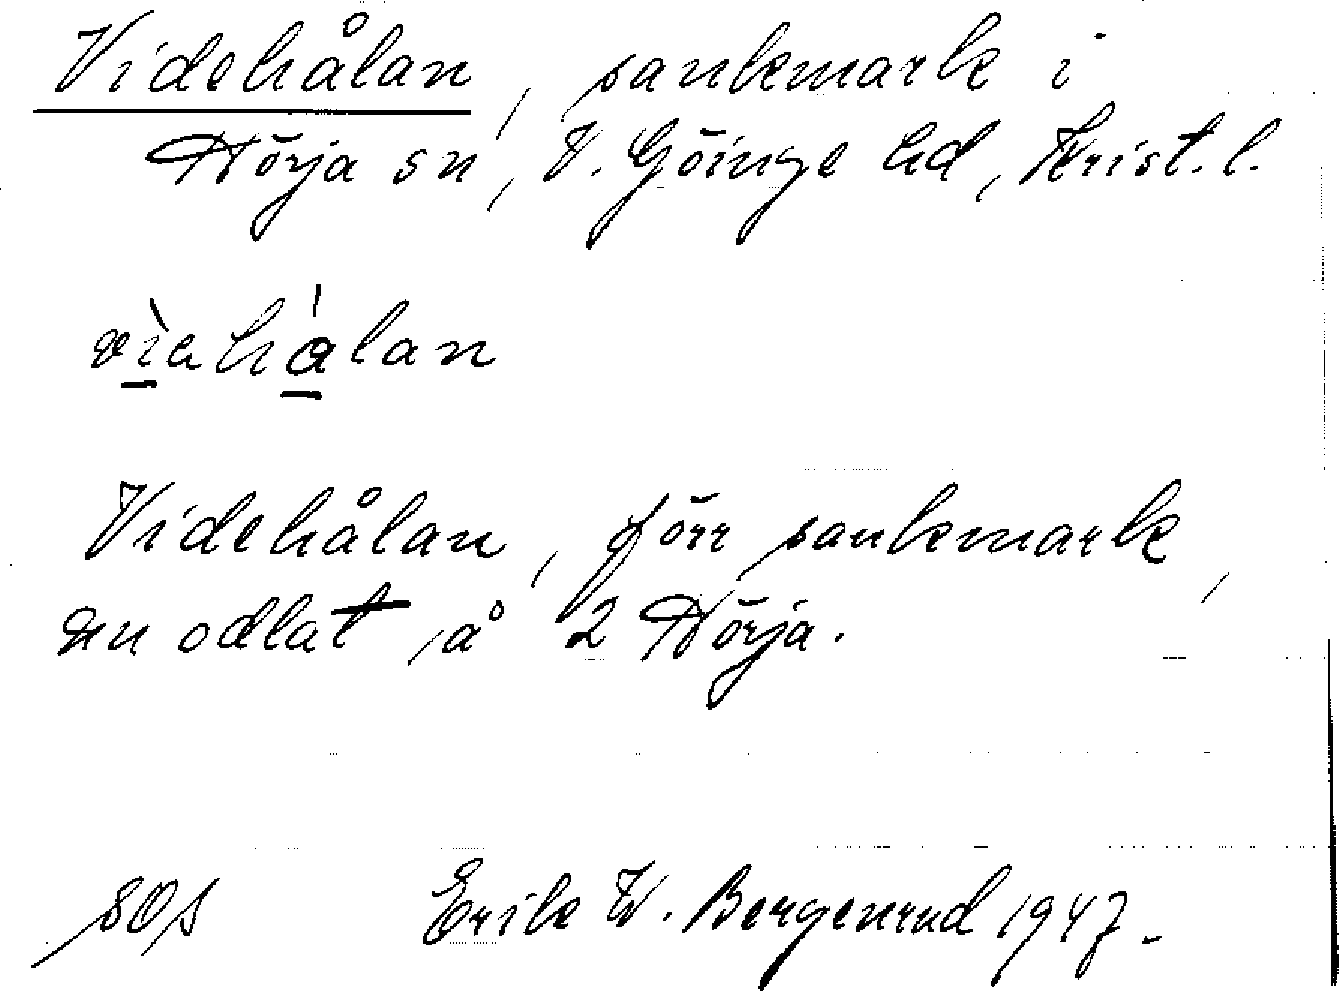 Videhålan, sankmark i
Nörja sn, V. Göinge hd, Krist. l.
vìahálan
Videhålan, förr sankmark,
nu odlat, å 2 Nörja.
Erik W. Bergenrud 1947.